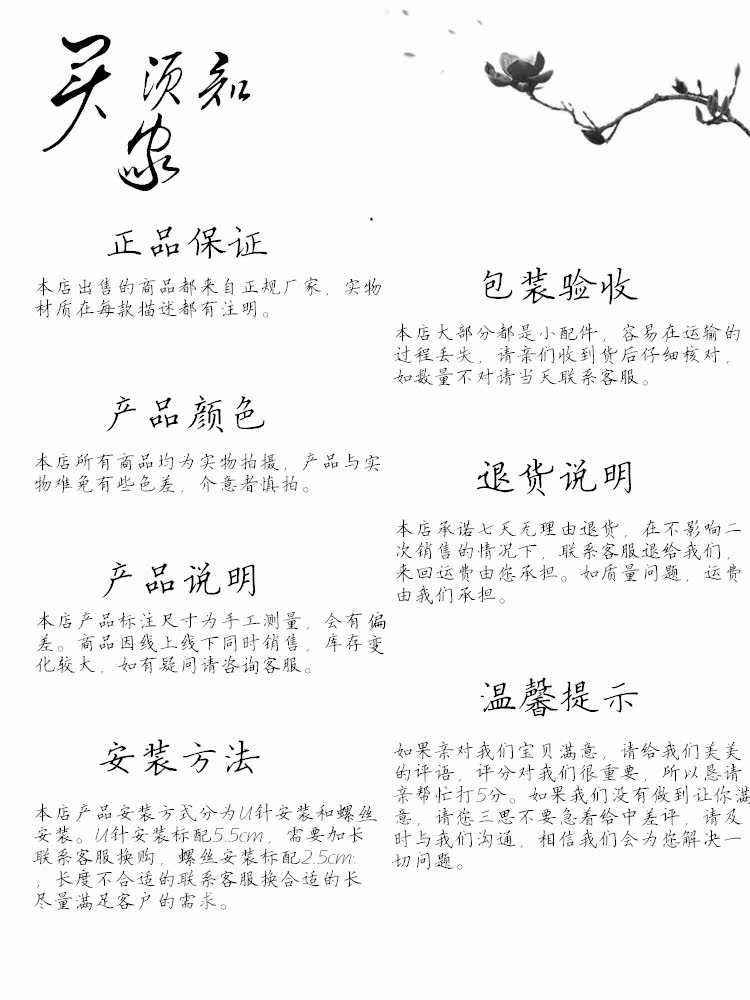 买家须知
正品保证
本店出售的商品都来自正规厂家，实物
材质在每款描述都有注明。
产品颜色
本店所有商品均为实物拍摄，产品与实
物难免有些色差，介意者慎拍。
产品说明
本店产品标注尺寸为手工测量，会有偏
差。商品因线上线下同时销售，库存变
化较大，如有疑问请咨询客服。
安装方法
本店产品安装方式分为U针安装和螺丝
安装。U针安装标配5.5cm，需要加长
联系客服换购，螺丝安装标配2.5cm
，长度不合适的联系客服换合适的长
尽量满足客户的需求。
包装验收
本店大部分都是小配件，容易在运输的
过程丢失，请亲们收到货后仔细核对，
如数量不对请当天联系客服。
退货说明
本店承诺七天无理由退货，在不影响二
次销售的情况下，联系客服退给我们，
来回运费由您承担。如质量问题，运费
由我们承担。
温馨提示
如果亲对我们宝贝满意，请给我们美美
的评语，评分对我们很重要，所以恳请
亲帮忙打5分。如果我们没有做到让你满
意，请您三思不要急着给中差评，请及
时与我们沟通，相信我们会为您解决一
切问题。